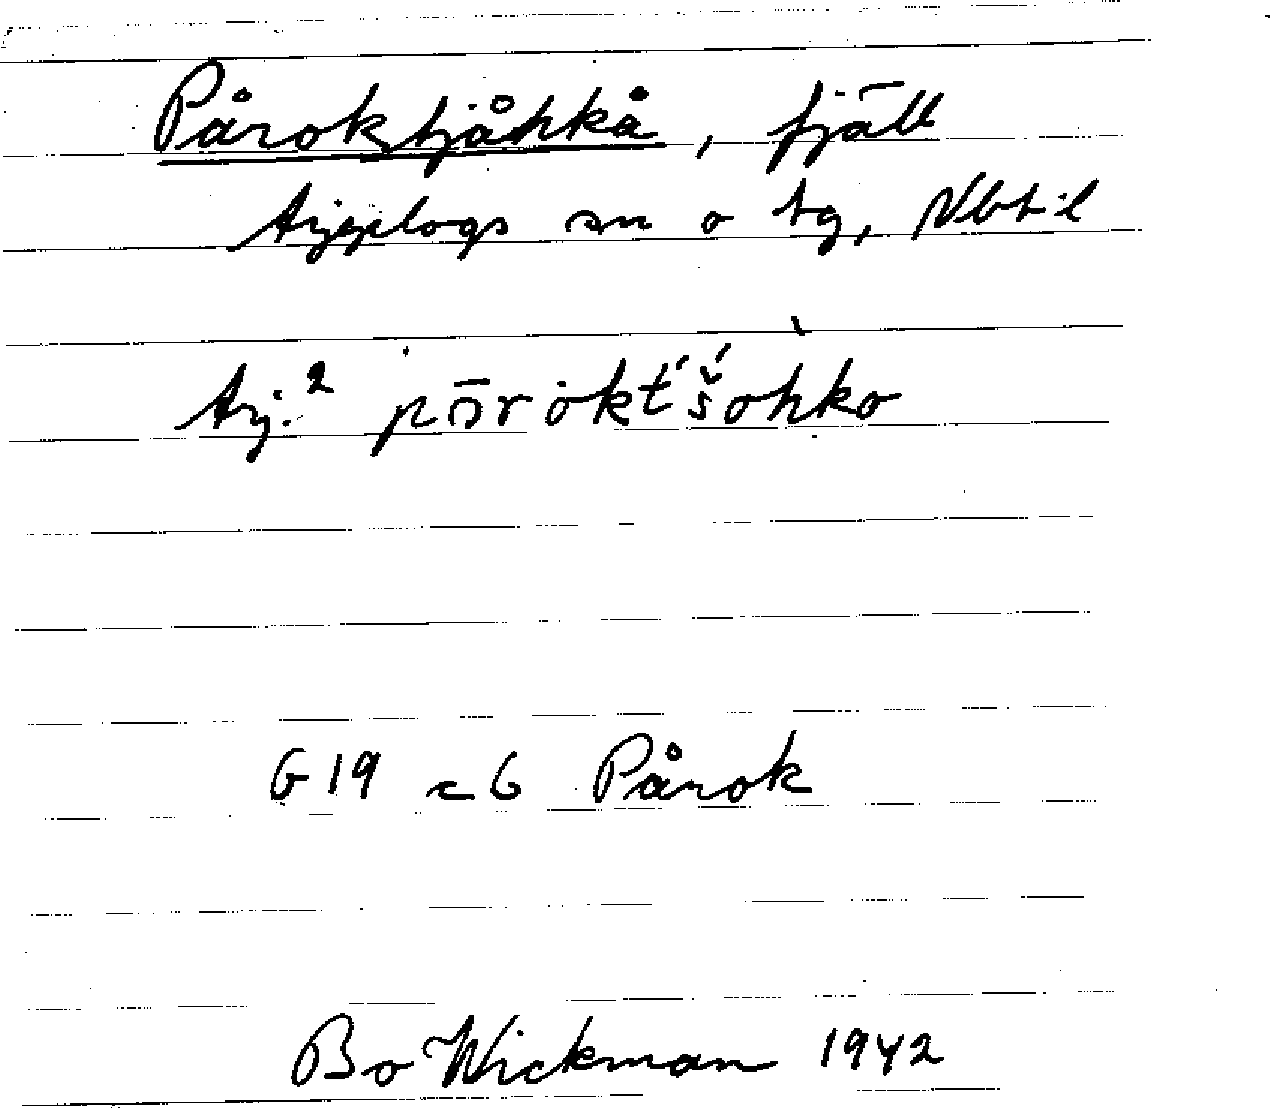 Påroktjåhkå, fjäll
Arjeplogs sn o tg, Vbt l
Arj.² pɔ̄rȯkt́'š́ohko
G 19 c 6 Pårok
Bo Wickman 1942